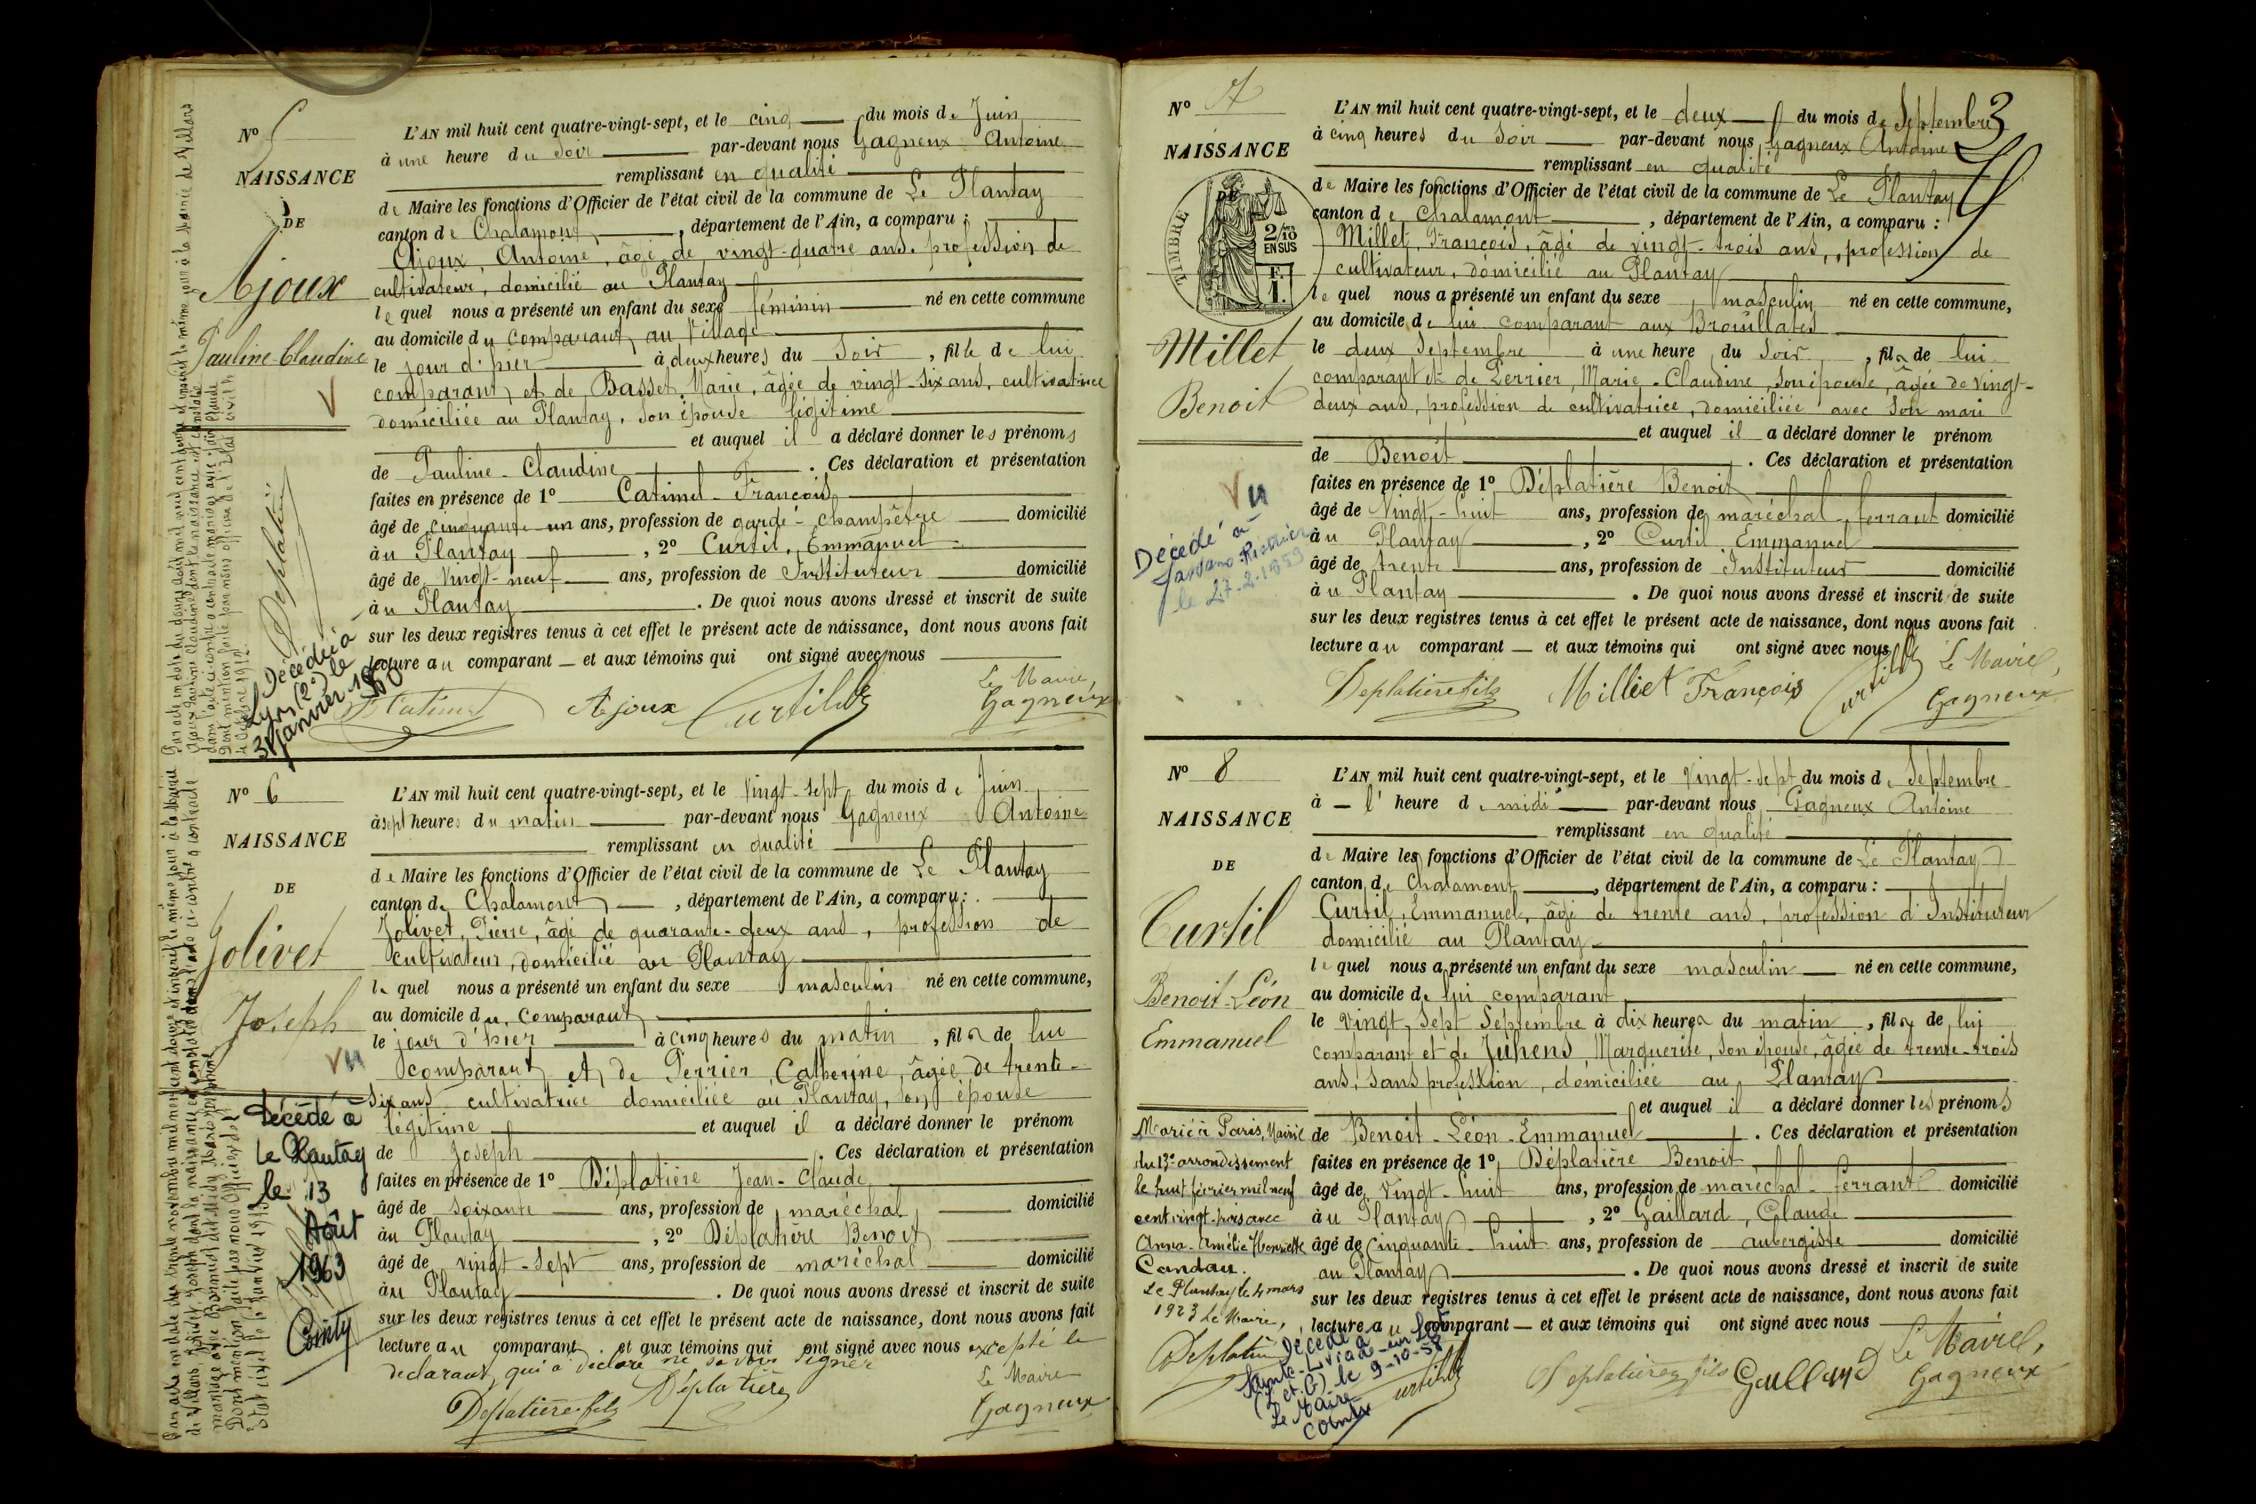 N° 5
NAISSANCE
DE
Ajoux
Pauline-Claudine
V
Déplatière
Décédée à
Lyon (2e) le
31 janvier 1960
L'AN mil huit cent quatre-vingt-sept, et le cinq du mois de Juin
à une heure du soir par-devant nous Gagneux Antoine
remplissant en qualité
de Maire les fonctions d'Officier de l'état civil de la commune de Le Plantay
canton de Chalamont, département de l'Ain, a comparu :
Ajoux, Antoine, âgé de vingt-quatre ans, profession de
cultivateur, domicilié au Plantay
lequel nous a présenté un enfant du sexe féminin né en cette commune
au domicile du comparant, au Village
le jour d'hier à deux heures du soir, fille de lui
comparant, et de Basset, Marie, âgée de vingt-six ans, cultivatrice
domiciliée au Plantay, son épouse légitime
et auquel il a déclaré donner les prénoms
de Pauline-Claudine. Ces déclaration et présentation
faites en présence de 1° Catimel François
âgé de cinquante un ans, profession de garde-champêtre domicilié
au Plantay, 2° Curtil, Emmanuel
âgé de vingt-neuf ans, profession de Instituteur domicilié
au Plantay. De quoi nous avons dressé et inscrit de suite
sur les deux registres tenus à cet effet le présent acte de naissance, dont nous avons fait
lecture au comparant et aux témoins qui ont signé avec nous
Le Maire,
Catimel Ajoux Curtil Gagneux
N° 6
NAISSANCE
DE
Jolivet
Joseph
Vu
Décédé à
Le Plantay
le 13
Août
1963
Cointy
L'AN mil huit cent quatre-vingt-sept, et le vingt-sept du mois de Juin
à sept heures du matin par-devant nous Gagneux Antoine
remplissant en qualité
de Maire les fonctions d'Officier de l'état civil de la commune de Le Plantay
canton de Chalamont, département de l'Ain, a comparu :
Jolivet, Pierre, âgé de quarante-deux ans, profession de
cultivateur, domicilié au Plantay
lequel nous a présenté un enfant du sexe masculin né en cette commune,
au domicile du comparant
le jour d'hier à cinq heures du matin, fils de lui
comparant et de Perrier, Catherine, âgée de trente-
six ans cultivatrice domiciliée au Plantay, son épouse
légitime et auquel il a déclaré donner le prénom
de Joseph. Ces déclaration et présentation
faites en présence de 1° Déplatière Jean-Claude
âgé de soixante ans, profession de maréchal domicilié
au Plantay, 2° Déplatière Benoit
âgé de vingt-sept ans, profession de maréchal domicilié
au Plantay. De quoi nous avons dressé et inscrit de suite
sur les deux registres tenus à cet effet le présent acte de naissance, dont nous avons fait
lecture au comparant et aux témoins qui ont signé avec nous excepté le
déclarant, qui a déclaré ne savoir signer
Le Maire
Déplatière fils Déplatière Gagneux
N° 7
NAISSANCE
DE
TIMBRE
2/10
EN SUS
F.
1.
Millet
Benoit
Vu
Décédé à
le 27-2-1959
3
L'AN mil huit cent quatre-vingt-sept, et le deux du mois de Septembre
à cinq heures du soir par-devant nous Gagneux Antoine
remplissant en qualité
de Maire les fonctions d'Officier de l'état civil de la commune de Le Plantay
canton de Chalamont, département de l'Ain, a comparu :
Millet, François, âgé de vingt-trois ans, profession de
cultivateur, domicilié au Plantay
lequel nous a présenté un enfant du sexe masculin né en cette commune,
au domicile de lui comparant aux Brouillates
le deux Septembre à une heure du soir, fils de lui
comparant et de Perrier, Marie-Claudine, son épouse, âgée de vingt-
deux ans, profession de cultivatrice, domiciliée avec son mari
et auquel il a déclaré donner le prénom
de Benoit. Ces déclaration et présentation
faites en présence de 1° Déplatière Benoit
âgé de vingt-huit ans, profession de maréchal-ferrant domicilié
au Plantay, 2° Curtil Emmanuel
âgé de trente ans, profession de Instituteur domicilié
au Plantay. De quoi nous avons dressé et inscrit de suite
sur les deux registres tenus à cet effet le présent acte de naissance, dont nous avons fait
lecture au comparant et aux témoins qui ont signé avec nous
Le Maire,
Déplatière fils Milliet François Curtil Gagneux
N° 8
NAISSANCE
DE
Curtil
Benoit-Léon
Emmanuel
Marié à Paris, Mairie
du 13e arrondissement
le huit février mil neuf
cent vingt-trois avec
Anna-Amélie Henriette
Candau.
Le Plantay le 4 mars
1923 Le Maire,
Déplatière
Décédé à
Sainte-Livrade-sur-Lot
(L et G) le 9-10-58
Le Maire
Cointy
L'AN mil huit cent quatre-vingt-sept, et le vingt-sept du mois de Septembre
à l'heure de midi par-devant nous Gagneux Antoine
remplissant en qualité
de Maire les fonctions d'Officier de l'état civil de la commune de Le Plantay
canton de Chalamont, département de l'Ain, a comparu :
Curtil, Emmanuel, âgé de trente ans, profession d'Instituteur
domicilié au Plantay
lequel nous a présenté un enfant du sexe masculin né en cette commune,
au domicile de lui comparant
le vingt sept Septembre à dix heures du matin, fils de lui
comparant et de Juhens, Marguerite, son épouse, âgée de trente-trois
ans, sans profession, domiciliée au Plantay
et auquel il a déclaré donner les prénoms
de Benoit-Léon-Emmanuel. Ces déclaration et présentation
faites en présence de 1° Déplatière Benoit
âgé de vingt-huit ans, profession de maréchal-ferrant domicilié
au Plantay, 2° Gaillard, Claude
âgé de cinquante-huit ans, profession de aubergiste domicilié
au Plantay. De quoi nous avons dressé et inscrit de suite
sur les deux registres tenus à cet effet le présent acte de naissance, dont nous avons fait
lecture au comparant et aux témoins qui ont signé avec nous
Le Maire,
Curtil Déplatière fils Gaillard Gagneux